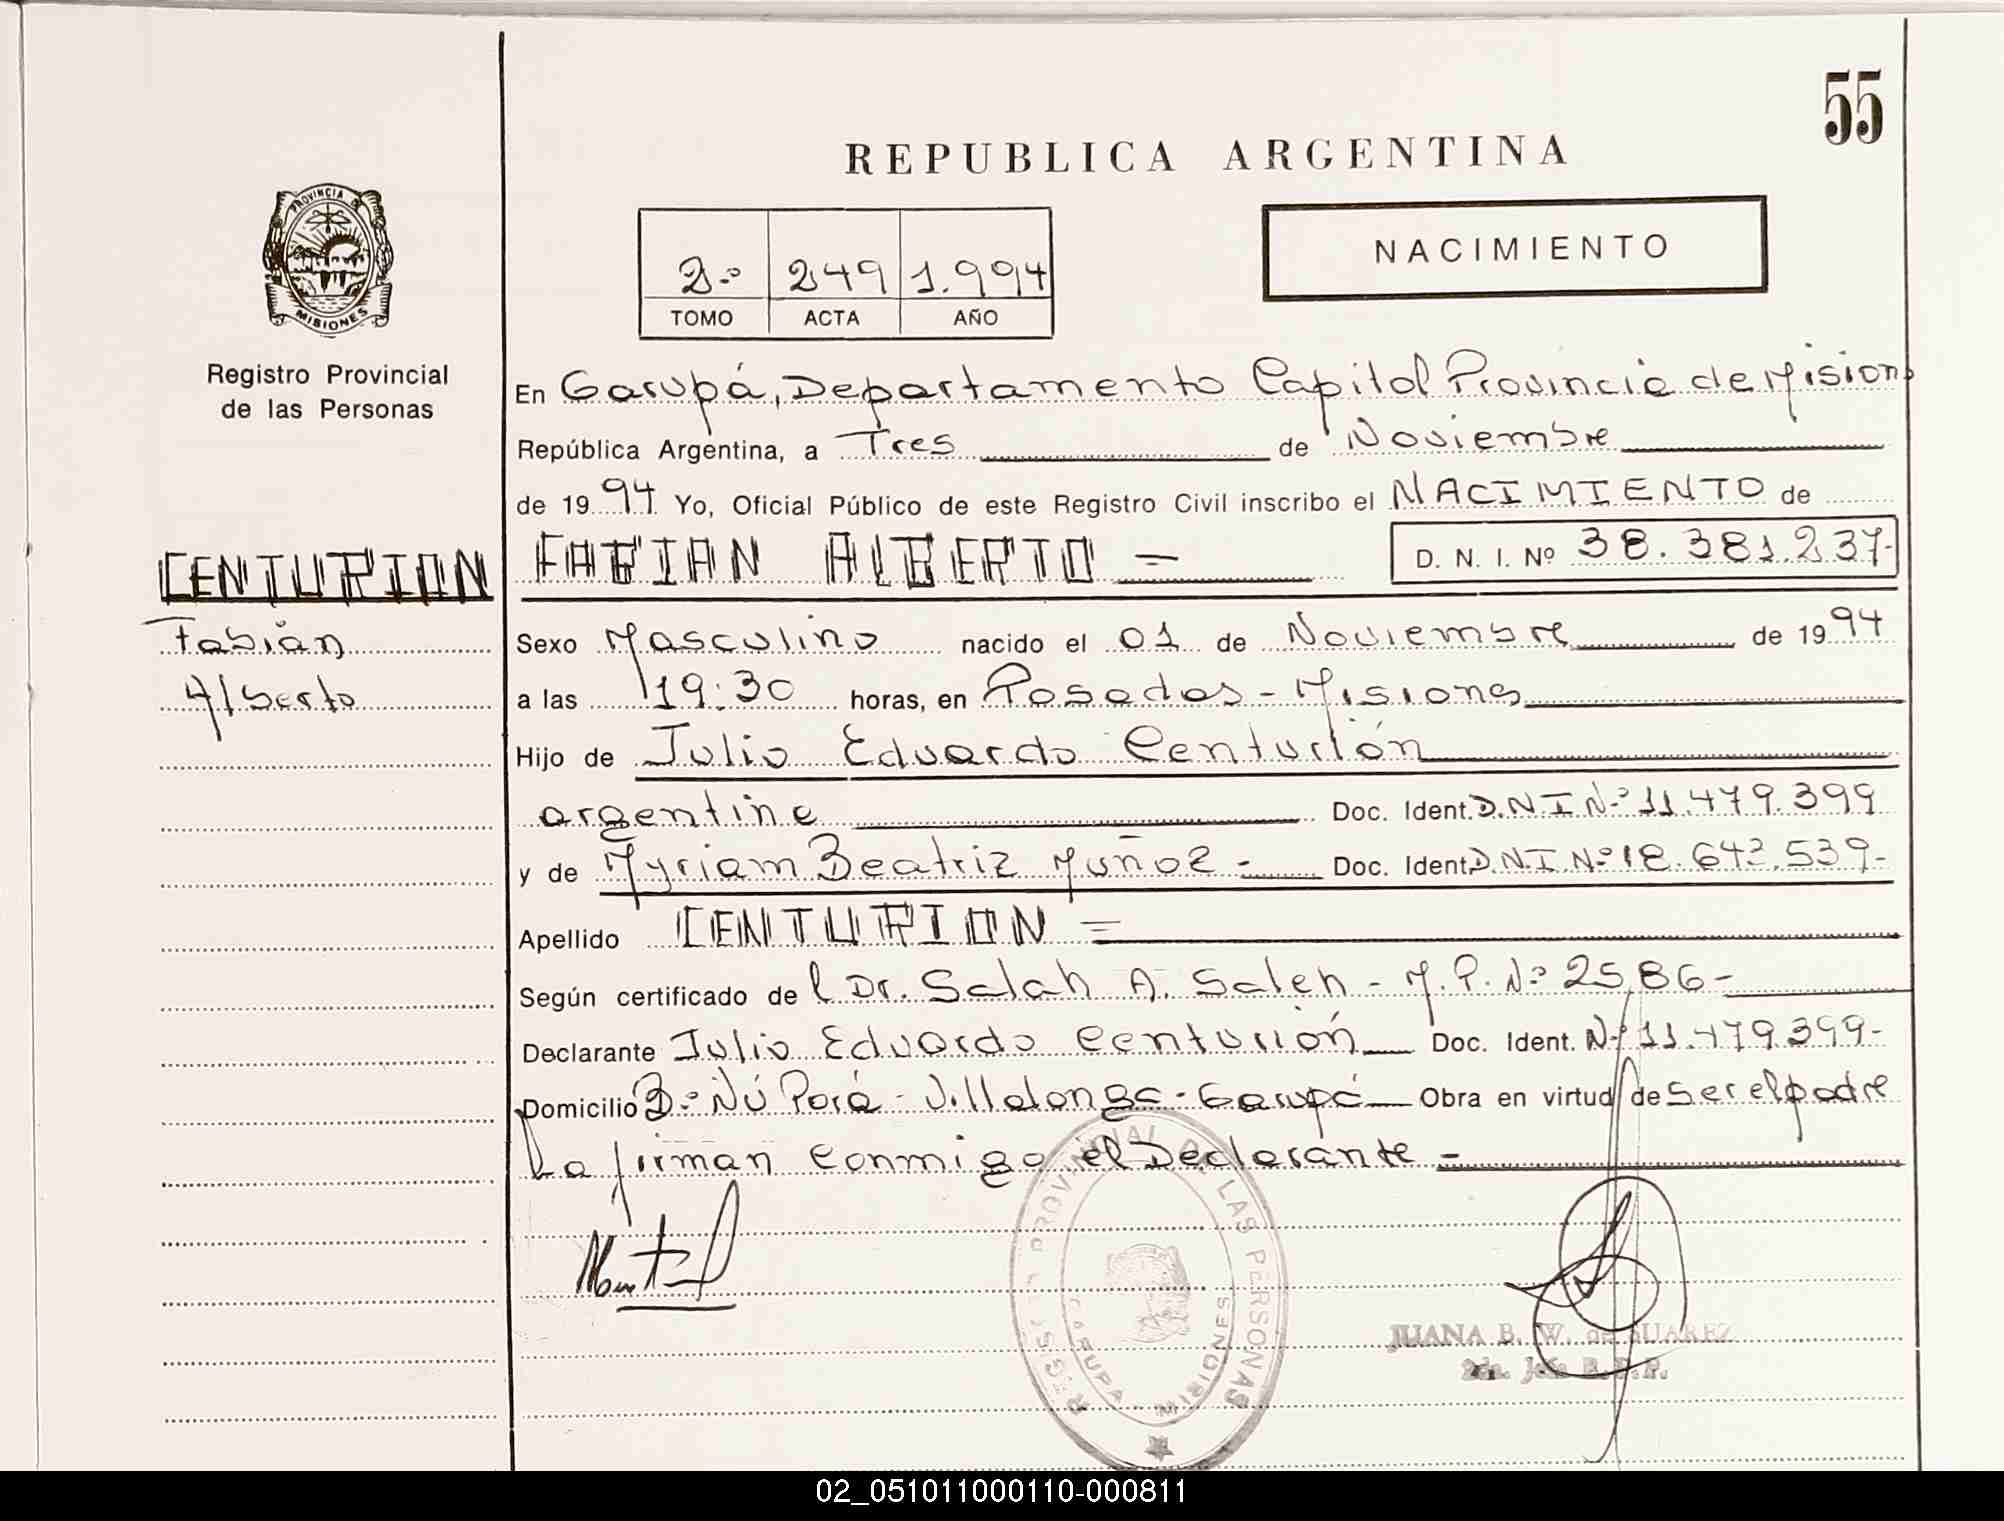 55
REPUBLICA ARGENTINA
PROVINCIA DE
MISIONES
Registro Provincial
de las Personas
2º 249 1.994
TOMO ACTA AÑO
NACIMIENTO
En Garupá, Departamento Capital Provincia de Misiones
República Argentina, a Tres de Noviembre
de 1994 Yo, Oficial Público de este Registro Civil inscribo el NACIMIENTO de
CENTURION FABIAN ALBERTO = D. N. I. Nº 38.381.237-
Fabián
Alberto
Sexo Masculino nacido el 01 de Noviembre de 1994
a las 19:30 horas, en Posadas - Misiones
Hijo de Julio Eduardo Centurión
argentino Doc. Ident. D.N.I Nº 11.479.399
y de Myriam Beatriz Muñoz - Doc. Ident. D.N.I. Nº 18.643.539-
Apellido CENTURION =
Según certificado del Dr. Salah A. Saleh - M.P. Nº 2586-
Declarante Julio Eduardo Centurión Doc. Ident. Nº 11.479.399-
Domicilio Bº Ñú Porá - Villalonga - Garupá Obra en virtud de ser el padre
La firman conmigo el Declarante -
REGISTRO PROVINCIAL DE LAS PERSONAS
GARUPA - MISIONES
JUANA B. W. de SUAREZ
2da. Jefe R.P.P.
02_051011000110-000811